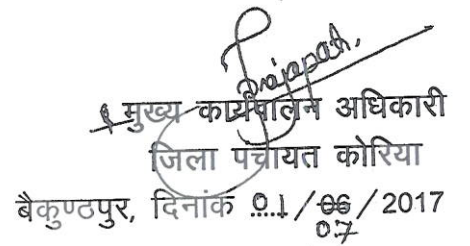 Prajapati,
मुख्य कार्यपालन अधिकारी
जिला पंचायत कोरिया
बैकुण्ठपुर, दिनांक 01/06/2017
07